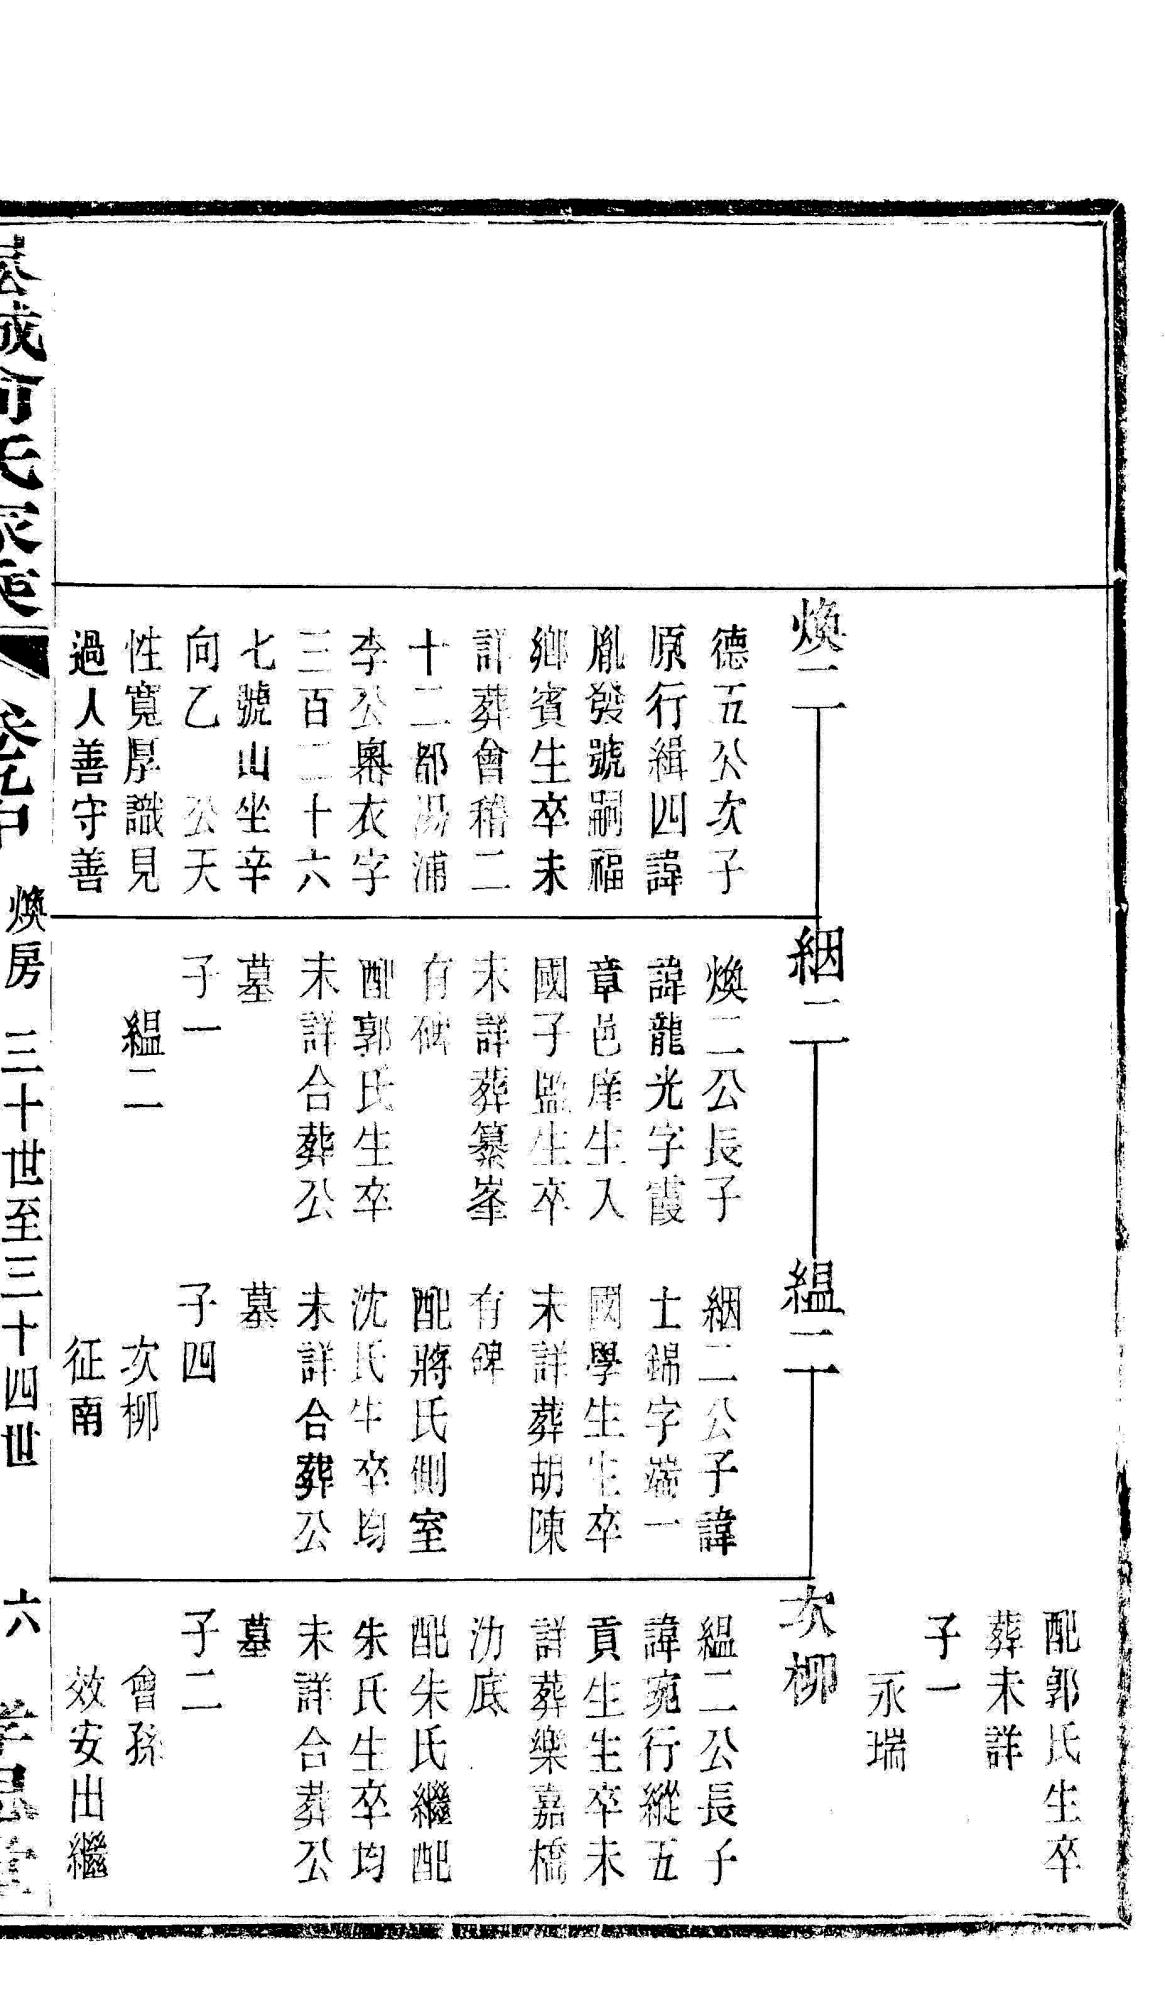 配郭氏生卒
葬未詳
子一
永瑞
煥二
德五公次子
原行緝四諱
胤發號嗣福
鄉賓生卒未
詳葬會稽二
十二都湯浦
李公奧衣字
三百二十六
七號山坐辛
向乙 公天
性寬厚識見
過人善守善
絪二
煥二公長子
諱龍光字霞
章邑庠生入
國子監生卒
未詳葬纂峯
有碑
配郭氏生卒
未詳合葬公
墓
子一
緼二
緼二
絪二公子諱
士錦字端一
國學生生卒
未詳葬胡陳
有碑
配蔣氏側室
沈氏生卒均
未詳合葬公
墓
子四
次柳
征南
次柳
緼二公長子
諱宛行縱五
貢生生卒未
詳葬樂嘉橋
泐底
配朱氏繼配
朱氏生卒均
未詳合葬公
墓
子二
會孫
效安出繼
城俞氏家乘 卷 中 煥房 三十世至三十四世 六 孝思堂